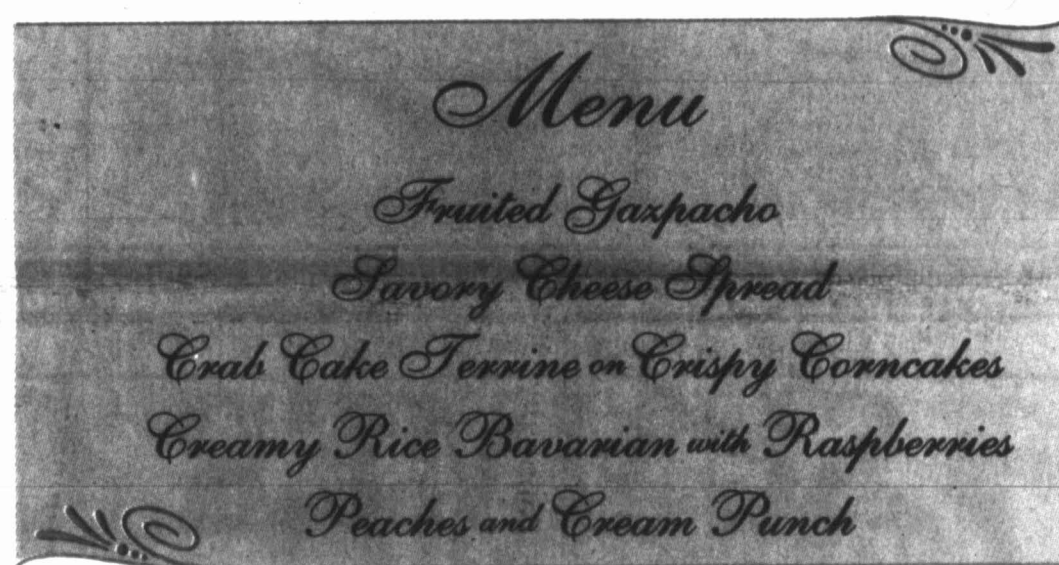 Menu
Fruited Gazpacho
Savory Cheese Spread
Crab Cake Terrine on Crispy Corncakes
Creamy Rice Bavarian with Raspberries
Peaches and Cream Punch